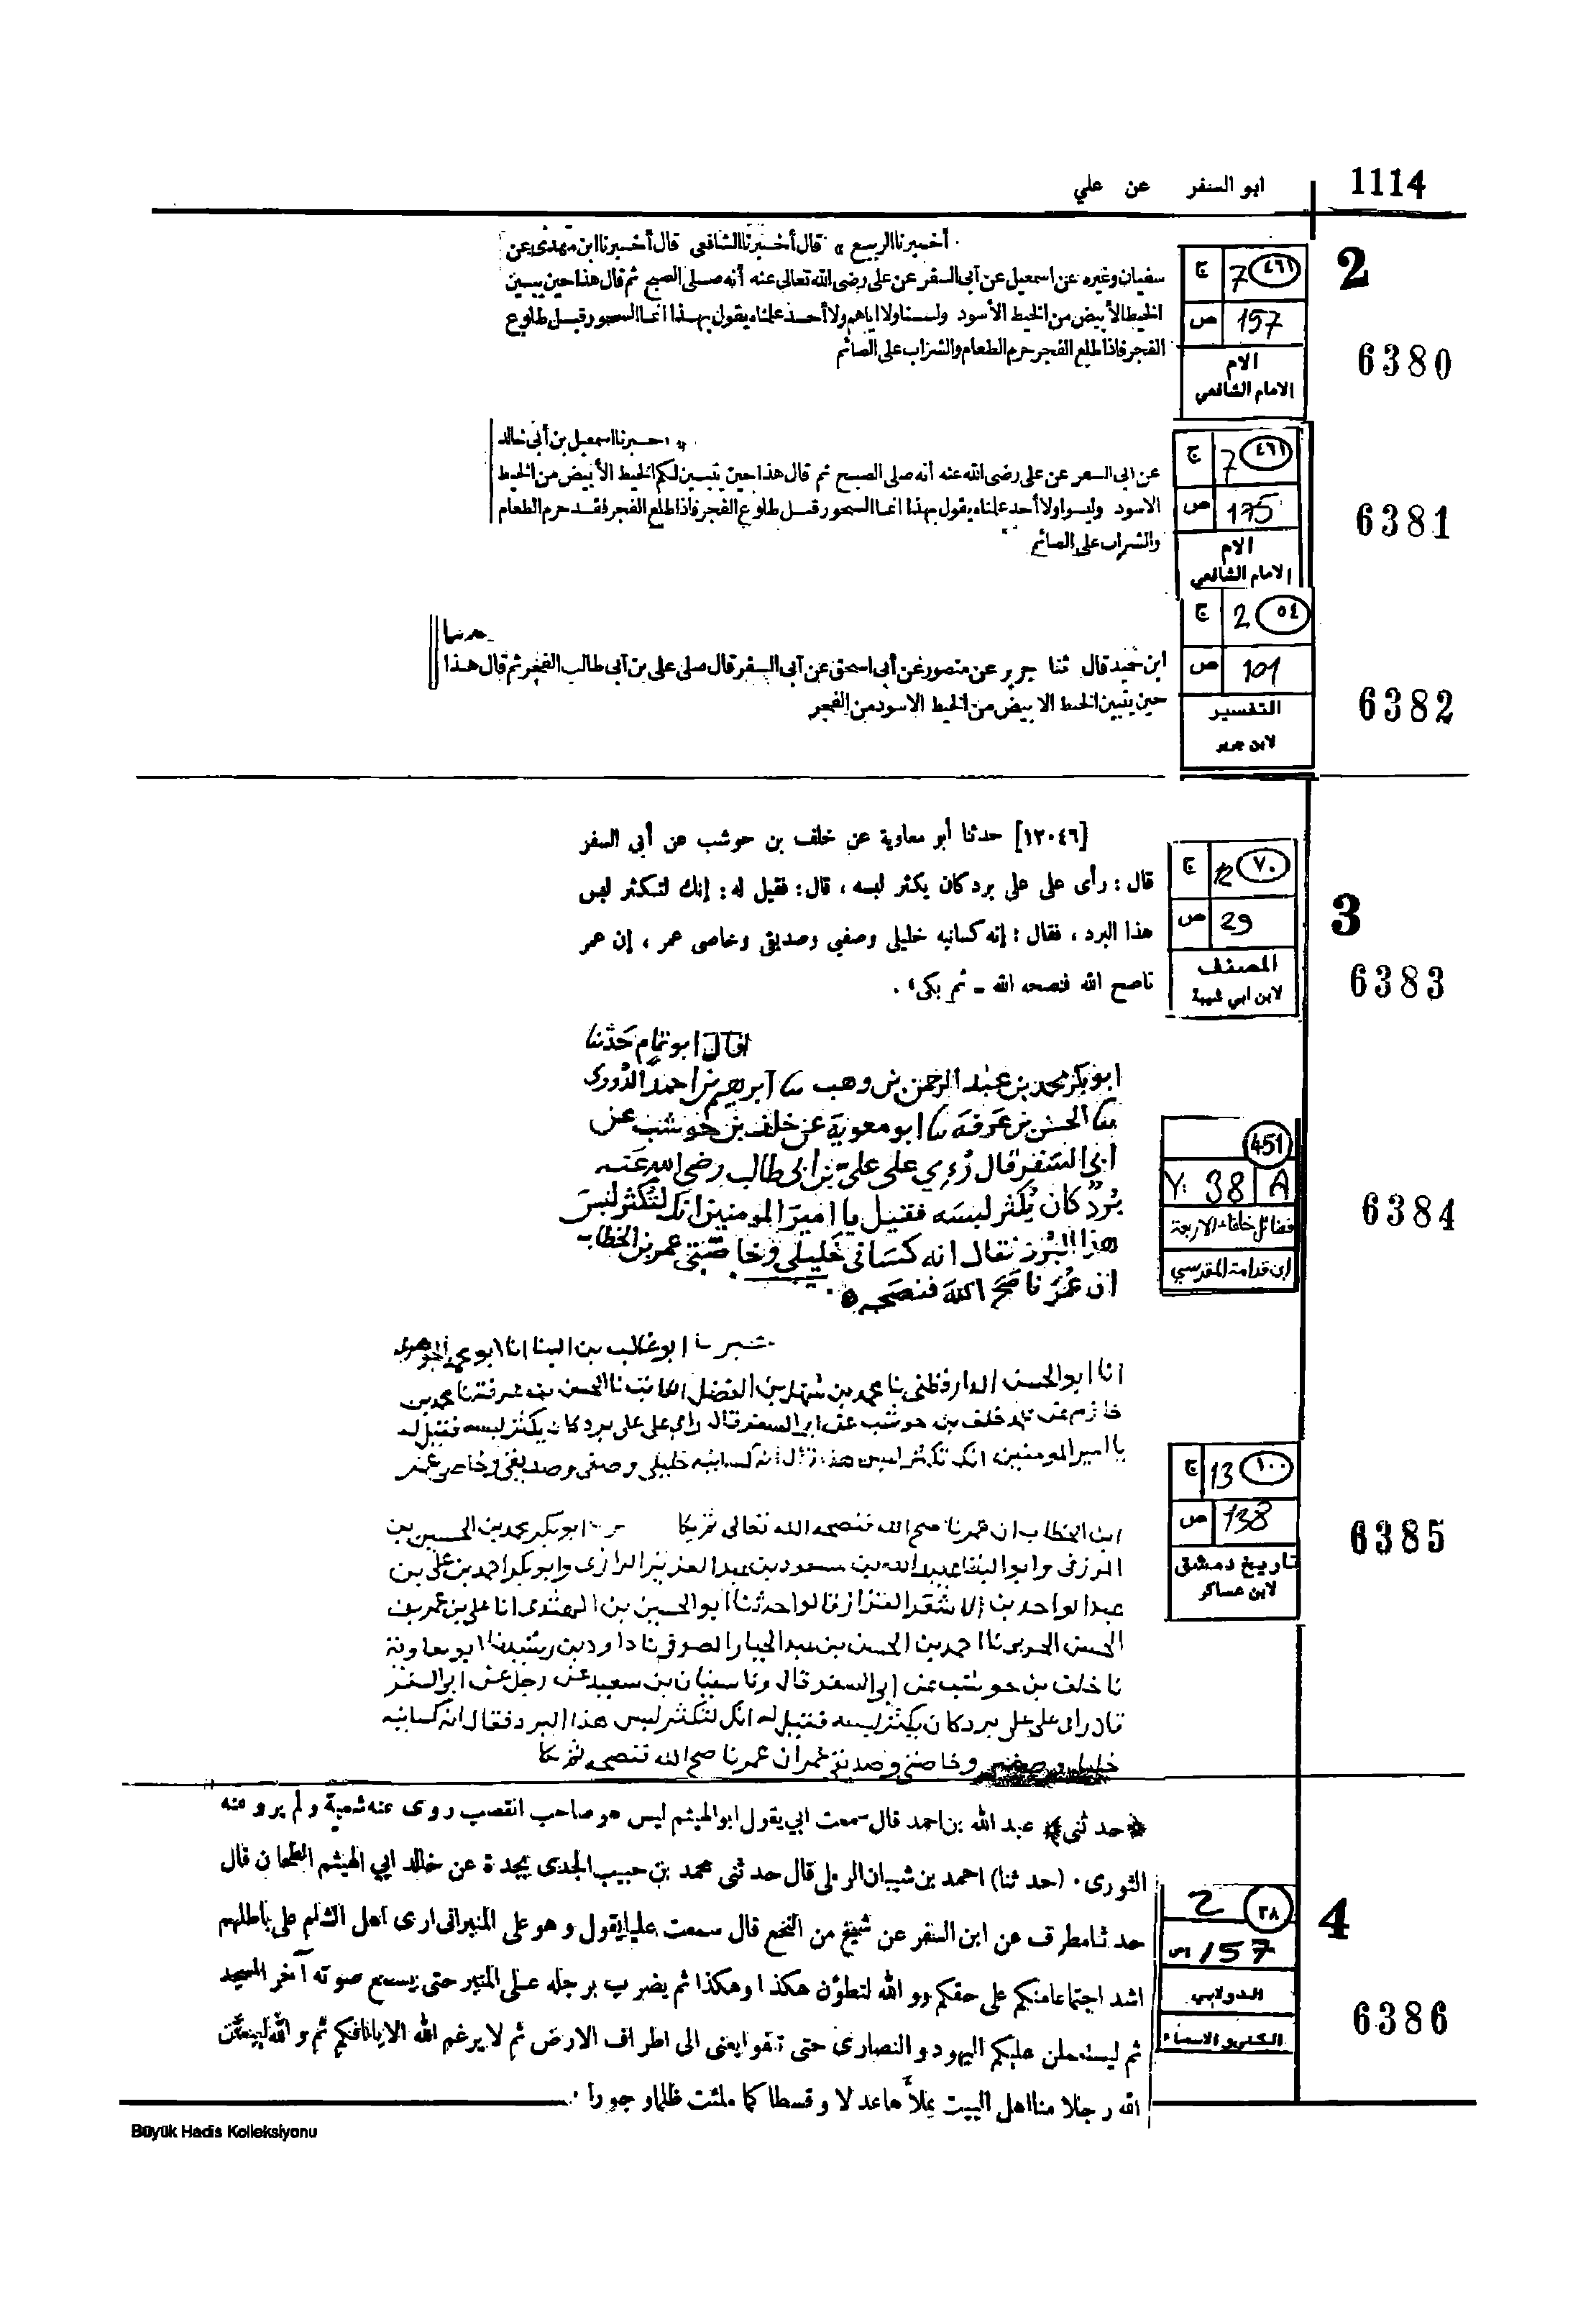 1114
ابو السفر عن علي
2
ج 7 (٤٦١)
ص 157
الام
الامام الشافعي
6380
أخبرنا الربيع قال أخبرنا الشافعي قال أخبرنا ابن مهدى عن
سفيان وغيره عن اسمعيل عن أبى السفر عن على رضى الله تعالى عنه أنه صلى الصبح ثم قال هذا حين يتبين
الخيط الأبيض من الخيط الأسود ولسنا ولا اياهم ولا أحد علمناه يقول بهذا انما السحور قبل طلوع
الفجر فاذا طلع الفجر حرم الطعام والشراب على الصائم
ج 7 (٤٦١)
ص 175
الام
الامام الشافعي
6381
اخبرنا اسمعيل بن أبى خالد
عن ابى السفر عن على رضى الله عنه أنه صلى الصبح ثم قال هذا حين يتبين لكم الخيط الأبيض من الخيط
الاسود وليسوا ولا أحد علمناه يقول بهذا انما السحور قبل طلوع الفجر فاذا طلع الفجر فقد حرم الطعام
والشراب على الصائم
ج 2 (٥٤)
ص 101
التفسير
لابن جرير
6382
حدثنا
ابن حميد قال ثنا جرير عن منصور عن أبى اسحق عن أبى السفر قال صلى على بن أبى طالب الفجر ثم قال هذا
حين يتبين الخيط الابيض من الخيط الاسود من الفجر
3
ج 12 (٧٠)
ص 29
المصنف
لابن ابي شيبة
6383
[١٢٠٤٦] حدثنا أبو معاوية عن خلف بن حوشب عن أبي السفر
قال : رأى على على برد كان يكثر لبسه ، قال : فقيل له : إنك لتكثر لبس
هذا البرد ، فقال : إنه كسانيه خليلى وصفيي وصديقى وخاصى عمر ، إن عمر
ناصح الله فنصحه الله - ثم بكى .
(451)
Y: 38 A
فضائل خلفاء الاربعة
ابن قدامة المقدسي
6384
قال ابو تمام حدثنا
ابو بكر محمد بن عبد الرحمن بن وهب نا ابرهيم بن احمد الدوري
نا الحسن بن عرفة نا ابو معوية عن خلف بن حوشب عن
ابي السفر قال رُءِي على علي بن ابي طالب رضي الله عنه
بُرد كان يُكثر لبسه فقيل يا امير المومنين انك لتكثر لبس
هذا البُرد فقال انه كساني خليلي وخاصّتي عمر بن الخطاب
ان عُمر ناصح الله فنصحه
ج 13 (١٠٠)
ص 138
تاريخ دمشق
لابن عساكر
6385
ابو غالب بن البنا انا ابو محمد الجوهرى
انا ابو الحسن الدارقطنى نا محمد بن الفضل الكاتب نا الحسن بن عرفة نا محمد بن
خازم عن خلف بن حوشب عن ابى السفر قال راى على على برد كان يكثر لبسه فقيل له
يا امير المومنين انك تكثر لبس هذا قال انه كسانيه خليلى وصفى وصديقى وخاصى عمر
ابن الخطاب ان عمر ناصح الله فنصحه الله تعالى ثم بكا ابو بكر محمد بن الحسين بن
المزرفى وابو البقا عبيد الله بن مسعود بن عبد العزيز الرازى وابو بكر احمد بن على بن
عبد الواحد بن الاشقر القزاز قالوا حدثنا ابو الحسين بن المهتدى انا على بن عمر بن
الحسن الحربى نا احمد بن الحسن بن عبد الجبار الصوفى نا داود بن رشيد نا ابو معاوية
نا خلف بن حوشب عن ابى السفر قال ونا سفيان بن سعيد عن رجل عن ابى السفر
قال راى على على برد كان يكثر لبسه فقيل له انك لتكثر لبس هذا البرد فقال انه كسانيه
خليلى وخاصتى وصديقى عمر ان عمر ناصح الله فنصحه ثم بكا
4
2 (٣٨)
ص 157
الدولابي
الكنى والاسماء
6386
﴿حدثنى﴾ عبد الله بن احمد قال سمعت ابي يقول ابو الهيثم ليس هو صاحب القصب روى عنه شعبة ولم يرو عنه
الثورى . (حدثنا) احمد بن شيبان الرملى قال حدثنى محمد بن حبيب الجدى بجدة عن خالد ابي الهيثم الطحان قال
حدثنا مطرف عن ابن السفر عن شيخ من النخع قال سمعت عليا يقول وهو على المنبر انى ارى اهل الشام على باطلهم
اشد اجتماعا منكم على حقكم ووالله لتطؤن هكذا وهكذا ثم يضرب برجله على المنبر حتى يسمع صوته آخر المسجد
ثم ليستعملن عليكم اليهود والنصارى حتى تنفوا يعنى الى اطراف الارض ثم لا يرغم الله الا بانافكم ثم والله ليبعثن
الله رجلا منا اهل البيت يملأها عدلا وقسطا كما ملئت ظلما وجورا .
Büyük Hadis Kolleksiyonu